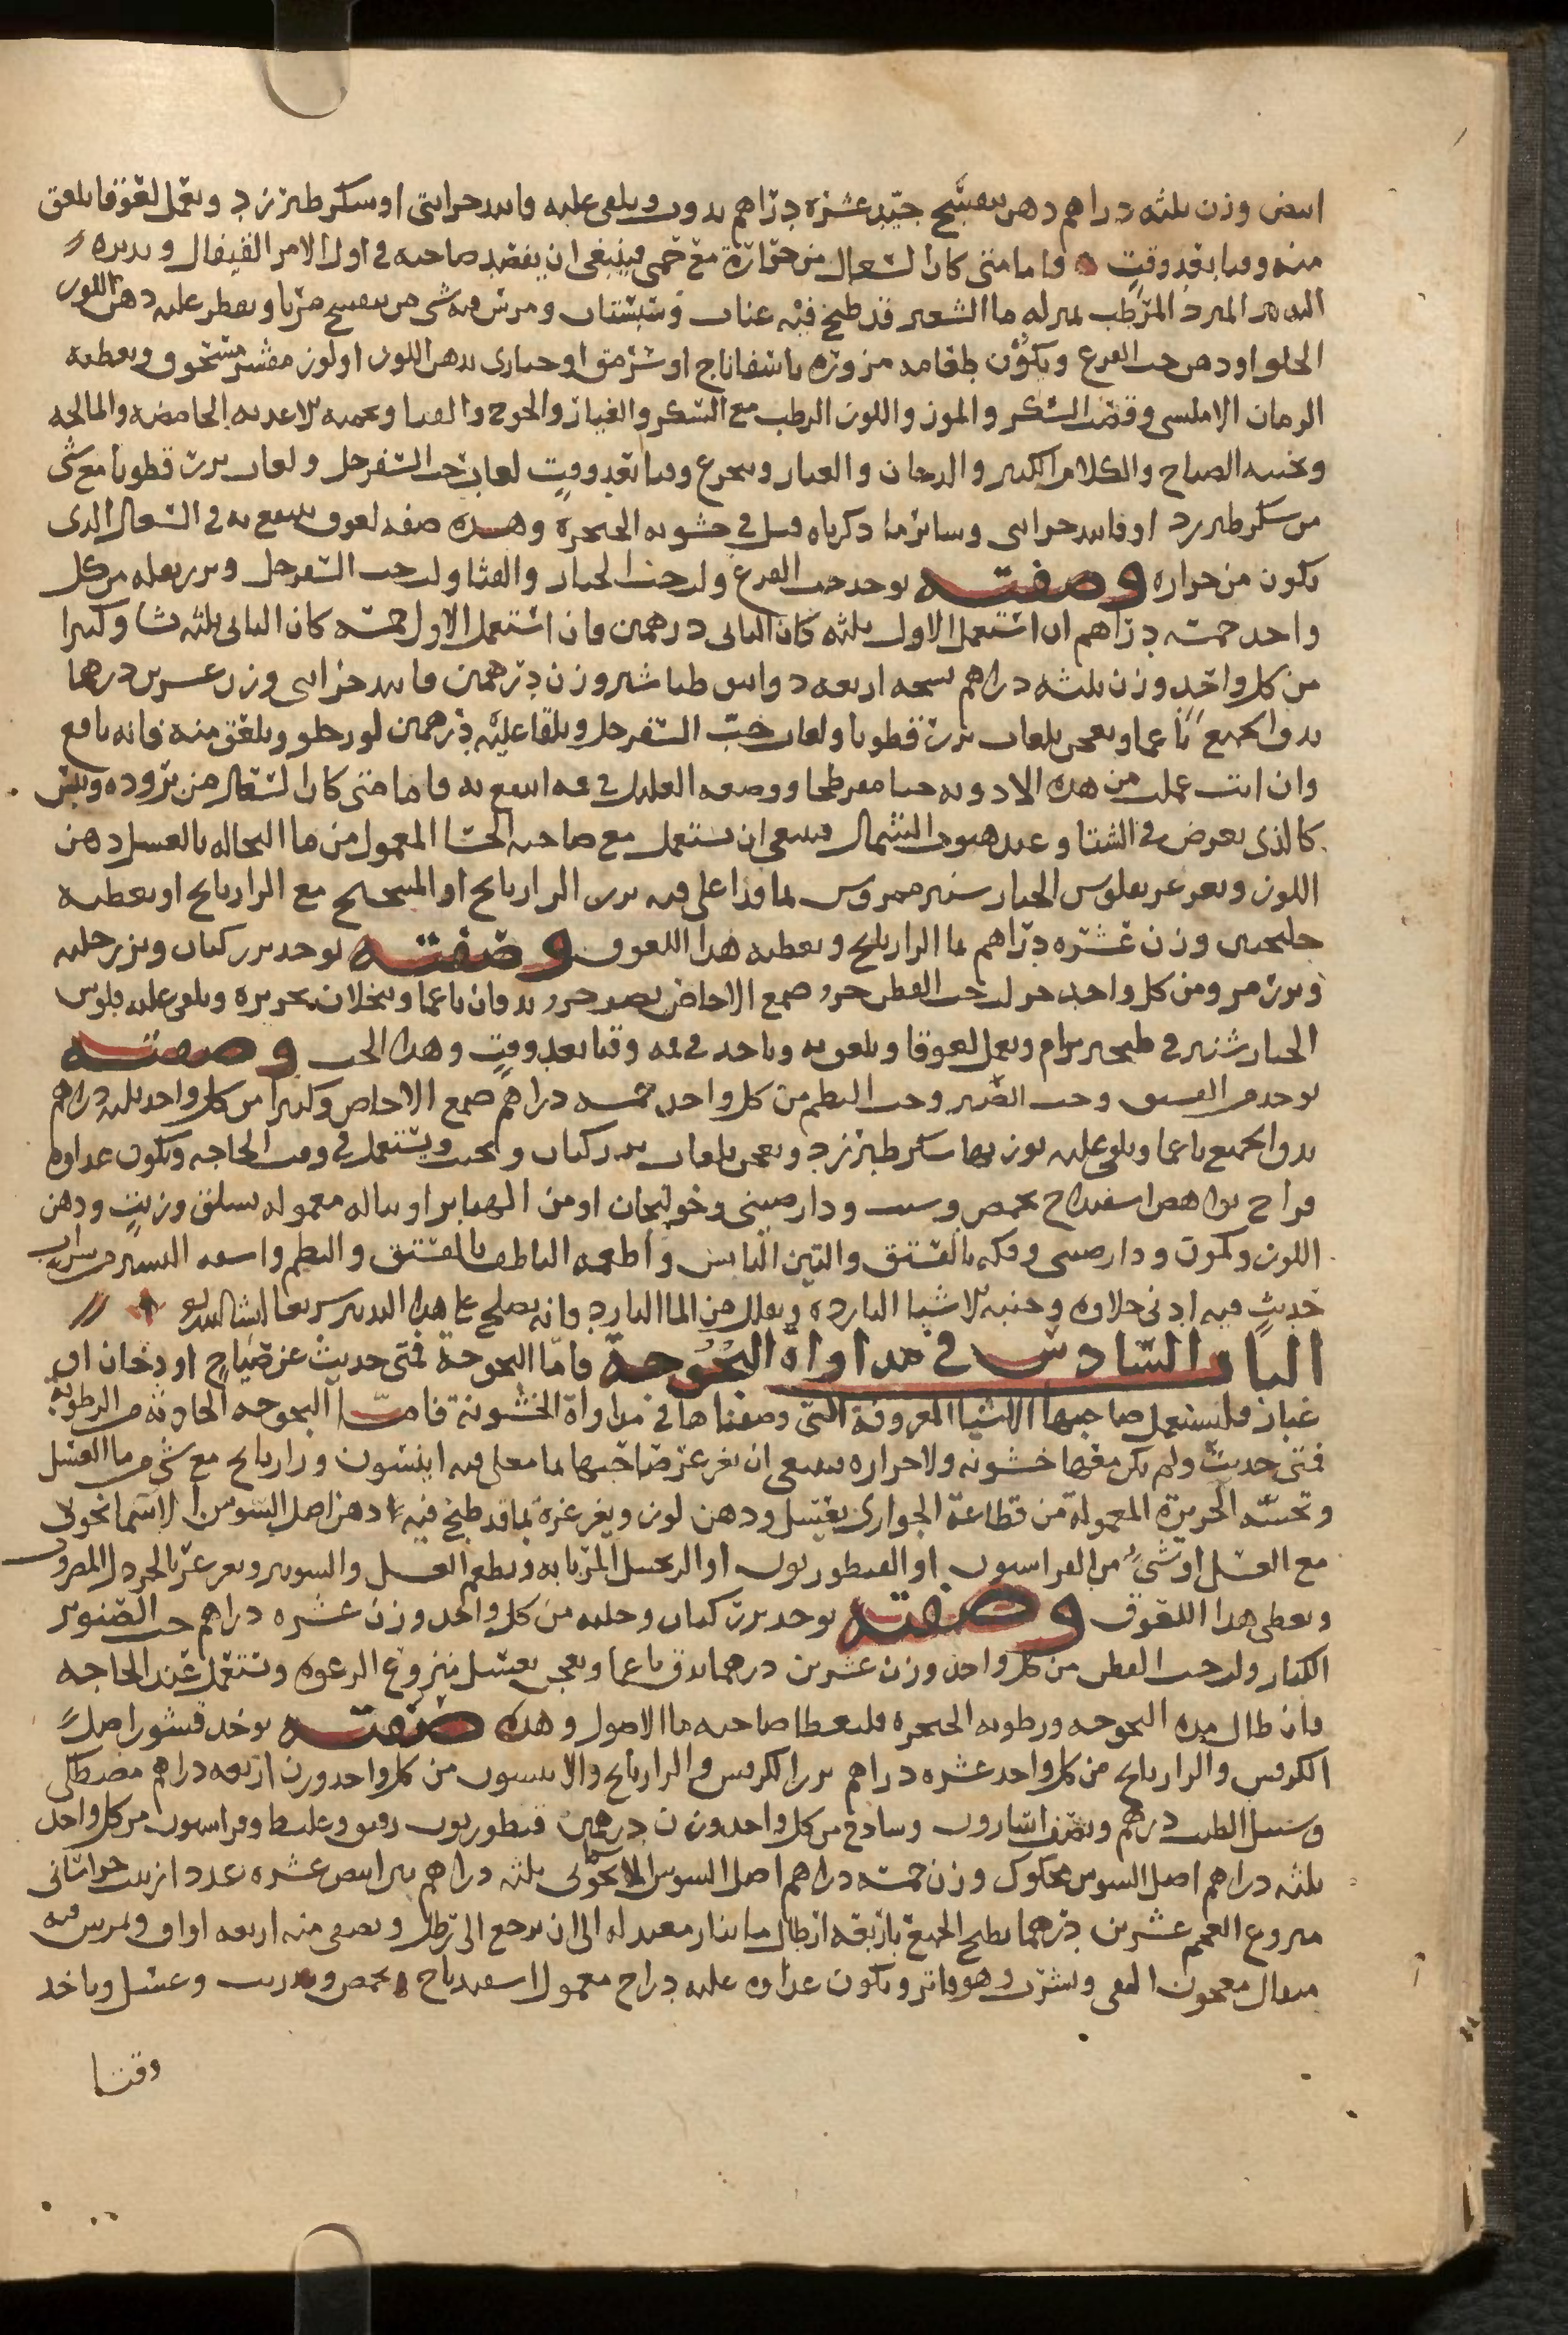 ابيض وزن ثلثه دراهم دهن بنفسج جيّد عشره دراهم يدوب ويلقى عليه فانيد خزايني او سكر طبرزد ويعمل لعوقا يلعق
منه وقتا بعد وقت فاما متى كان السعال من حرارة مع حمى فينبغي ان يفصد صاحبه في اول الامر القيفال ويدبره
التدبير المبرد المرطب بمنزله ما الشعير قد طبخ فيه عناب وسبستان ومرس فيه شي من بنفسج مربا ويقطر عليه دهن اللوز
الحلو او دهن حب القرع ويكون طعامه مزوره باسفاناج او سرمق او خبازى بدهن اللوز او لوز مقشر مسحوق ويعطيه
الرمان الامليسى وقصب السكر والموز واللوز الرطب مع السكر والخيار والخوخ والقثا ويحميه الاغديه الحامضه والمالحه
ويجنبه الصياح والكلام الكثير والدخان والغبار ويتجرع وقتا بعد وقت لعاب حب السفرجل ولعاب بزر قطونا مع شى
من سكر طبرزد او فانيد خزاينى وساير ما دكرناه قبل في خشونه الحنجره وهذه صفه لعوق ينتفع به في السعال الدى
يكون من حراره وصفته يوخد حب القرع ولب حب الخيار والقثا ولب حب السفرجل وبزر بقله من كل
واحد خمسه دراهم ان استعمل الاول ثلثه كان الثانى درهمين فان استعمل الاول خمسه كان الثانى ثلثه نشا وكثيرا
من كل واحد وزن ثلثه دراهم سحه اربعه دوانيق طباشير وزن درهمين فانيد خزاينى وزن عشرين درهما
يدق الجميع ناعما ويعجن بلعاب بزر قطونا ولعاب حب السفرجل ويلقا عليه درهمين لوز حلو ويلعق منه فانه نافع
وان انت عملت من هده الادويه حبا مفرطحا ووضعه العليل في فمه انتفع به فاما متى كان السعال من بروده ويبس
كالذى يعرض في الشتا وعند هبوب الشمال فينبغى ان يستعمل مع صاحبه الحسا المعمول من ما النخاله بالعسل دهن
اللوز ويغرغر بفلوس الخيار شنبر ممروس بما قد اغلى فيه بزر الرازيانج او الميبختج مع الرازيانج او يعطيه
جلنجبين وزن عشره دراهم بما الرازيانج ويعطيه هذا اللعوق وصفته يوخد بزر كتان وبزر حلبه
وبزر مرو من كل واحد جز لب حب القطن جز وصمغ الاجاص نصف جزو يدقان ناعما وينخلان بحريره ويلقى عليه فلوس
الخيار شنبر في طنجير برام ويعمل لعوقا ويلعق به وياخد في فمه وقتا بعد وقت وهدا الحب وصفته
يوخد من الفستق وحب الصنوبر وحب البطم من كل واحد خمسه دراهم صمغ الاجاص وكثيرا من كل واحد ثلثه دراهم
يدق الجميع ناعما ويلقى عليه بوزنها سكر طبرزد ويعجن بلعاب بزر كتان ويحبب ويستعمل في وقت الحاجه ويكون غداوه
فراخ نواهض اسفيدباج بحمص وشبت ودارصينى وخولنجان او من الهنابر او بناله معموله بسلق وزيت ودهن
اللوز وكمون ودارصينى وفكه بالفستق والتين اليابس واطعمه الناطف بالفستق والبطم واسقه اليسير من شراب
حديث فيه ادنى حلاوه وجنبه الاشيا البارده ويقلل من الما البارد فانه يصلح على هذا التدبير سريعا انشا الله
الباب السادس في مداواة البحوحة فامّا البحوحة فمتى حدثت عن صياح او دخان او
غبار فليستعمل صاحبها الاشيا المعروفة التى وصفناها في مداواة الخشونة فامّا البحوحه الحادثه من الرطوبة
فمتى حدثت ولم يكن معها خشونه ولا حراره فينبغى ان يغرغر صاحبها بما مغلى فيه انيسون ورازيانج مع شى من ما العسل
وتحسّه الحريرة المعمولة من قطاعة الحوارى بعسل ودهن لوز ويغرغره بما قد طبخ فيه دهن اصل السوسن الاسمانجونى
مع العسل او شىء من الفراسيون او القنطوريون او الزنجبيل المربا به ويطعم العسل والسونير ويغرغر بالخردل المضروب
ويعطى هدا اللعوق وصفته يوخد بزر كتان وحلبه من كل واحد وزن عشره دراهم حب الصنوبر
الكبار ولب حب القطن من كل واحد وزن عشرين درهما يدق ناعما ويعجن بعسل منزوع الرغوه وتستعمل عند الحاجه
فان طال مده البحوحه ورطوبه الحنجره فليعطا صاحبه ما الاصول وهده صفته يوخد قشور اصل
الكرفس والرازيانج من كل واحد عشره دراهم بزر الكرفس والرازيانج والانيسون من كل واحد وزن اربعه دراهم مصطكى
وسنبل الطيب درهم ونصف اسارون وسادج من كل واحد وزن درهمين قنطوريون دقيق وغليظ وفراسيون من كل واحد
ثلثه دراهم اصل السوس محكوك وزن خمسه دراهم اصل السوسن الاسمانجونى ثلثه دراهم تين ابيض عشره عدد ازبيب خراسانى
منزوع العجم عشرين درهما يطبخ الجميع باربعه ارطال ما بنار معتدله الى ان يرجع الى رطل ويصفى منه اربعه اواق ويمرس فيه
مثقال معجون الفى ويشرب وهو فاتر ويكون غداوه عليه دراج معمول اسفيدباج بحمص وشبت وعسل وياخد
وقتا